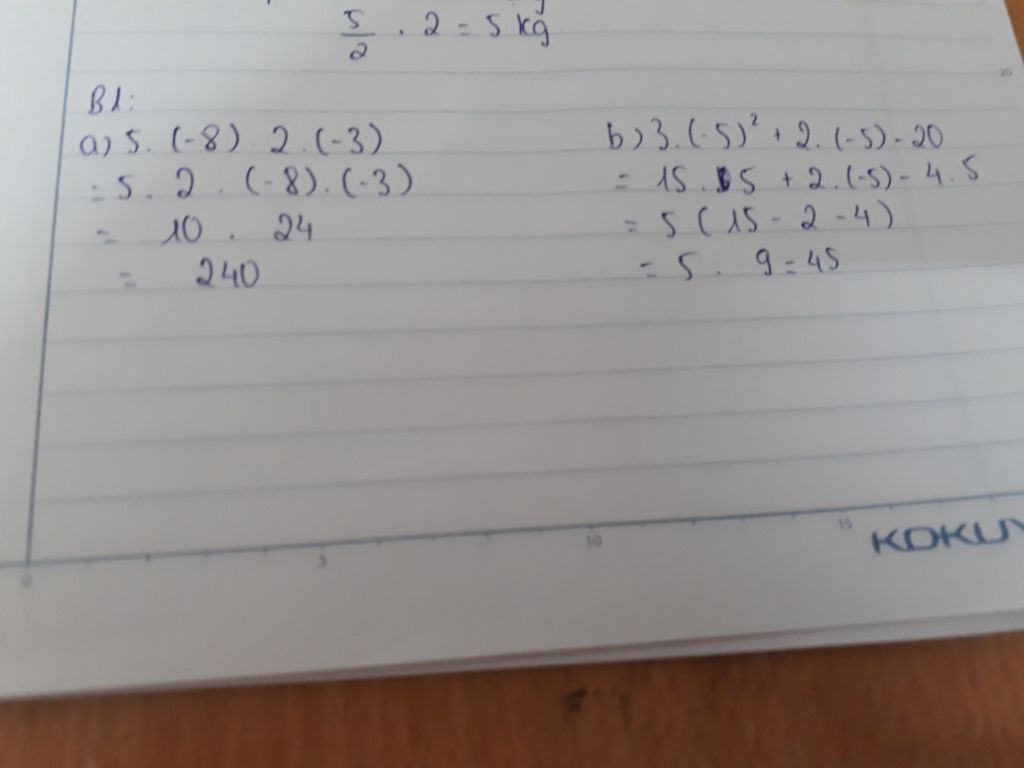 5/2 . 2 = 5 kg
20
B1:
a) 5. (-8) . 2 . (-3)
= 5 . 2 . (-8) . (-3)
= 10 . 24
= 240
b) 3. (-5)² + 2. (-5) - 20
= 15 . 5 + 2. (-5) - 4 . 5
= 5 ( 15 - 2 - 4 )
= 5 . 9 = 45
0 5 10 15
KOKUY